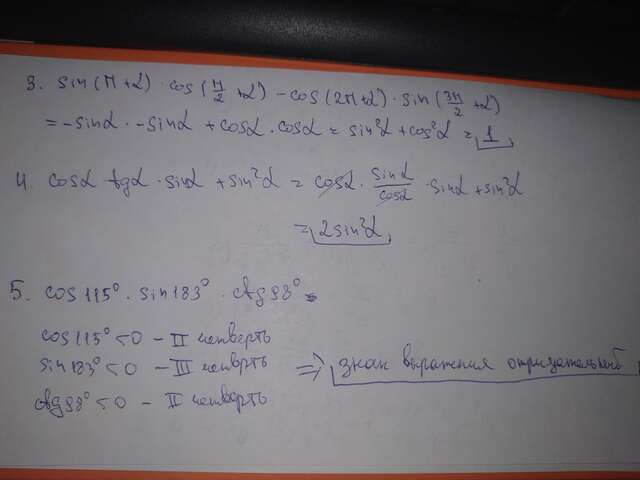 3. sin(π+α) · cos(π/2 +α) - cos(2π+α) · sin(3π/2 +α)
= -sinα · -sinα + cosα · cosα = sin²α + cos²α = 1
4 cosα · tgα · sinα + sin²α = cosα · sinα/cosα · sinα + sin²α
= 2sin²α
5. cos115° · sin183° · ctg98° =
cos115° < 0 - II четверть
sin183° < 0 - III четврть
ctg98° < 0 - II четверть
=> знак выражения отрицательный